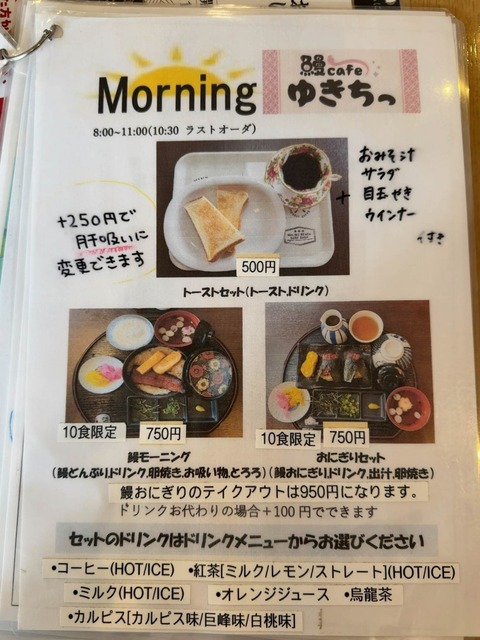 Morning
鰻cafe
ゆきちっ
8:00~11:00(10:30 ラストオーダ)
おみそ汁
サラダ
目玉やき
ウインナー
+
+250円で
肝吸いに
変更できます
500円
トーストセット(トースト,ドリンク)
10食限定 750円
10食限定 750円
鰻モーニング
(鰻どんぶり,ドリンク,卵焼き,お吸い物,とろろ)
おにぎりセット
(鰻おにぎり,ドリンク,出汁,卵焼き)
鰻おにぎりのテイクアウトは950円になります。
ドリンクお代わりの場合+100円でできます
セットのドリンクはドリンクメニューからお選びください
•コーヒー(HOT/ICE) •紅茶[ミルク/レモン/ストレート](HOT/ICE)
•ミルク(HOT/ICE) •オレンジジュース •烏龍茶
•カルピス[カルピス味/巨峰味/白桃味]